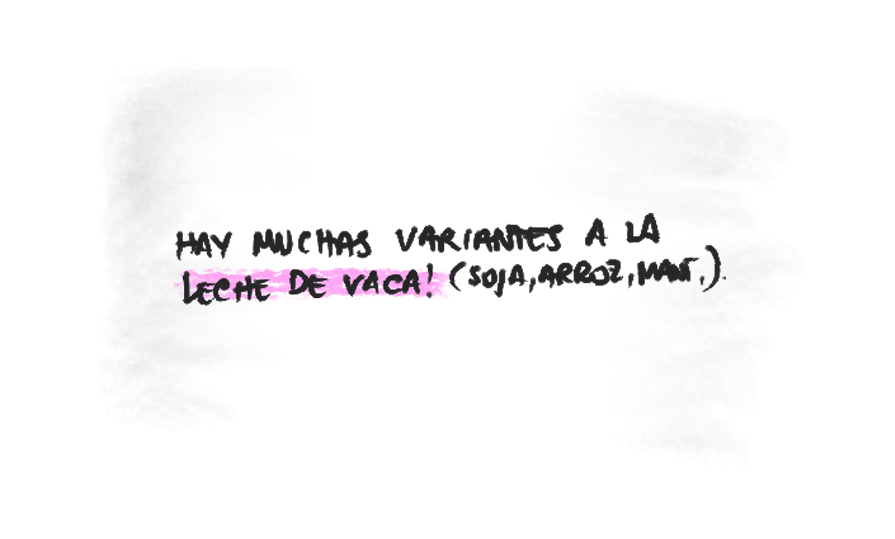 HAY MUCHAS VARIANTES A LA
LECHE DE VACA! (SOJA, ARROZ, MANÍ,).